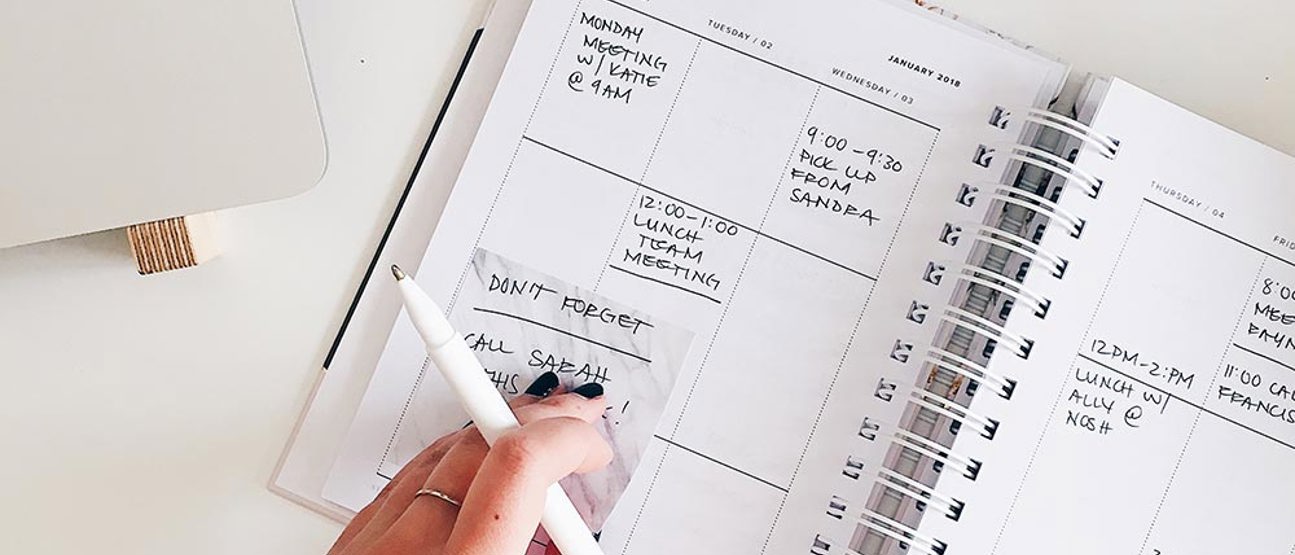 MONDAY
MEETING
W/ KATIE
@ 9AM
TUESDAY / 02
JANUARY 2018
WEDNESDAY / 03
9:00-9:30
PICK UP
FROM
SANDRA
12:00-1:00
LUNCH
TEAM
MEETING
DON'T FORGET
CALL SARAH
THIS
THURSDAY / 04
12PM-2:PM
LUNCH W/
ALLY @
NOSH
FRID
8:00
MEE
11:00 CAL
FRANCIS